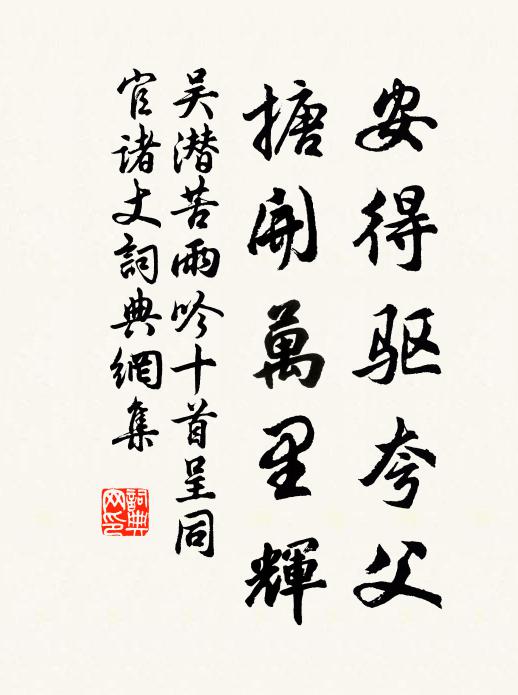 安得驱夸父
搪開萬里輝
吴潜苦雨吟十首呈同
官诸丈詞典網集
詞典
网印